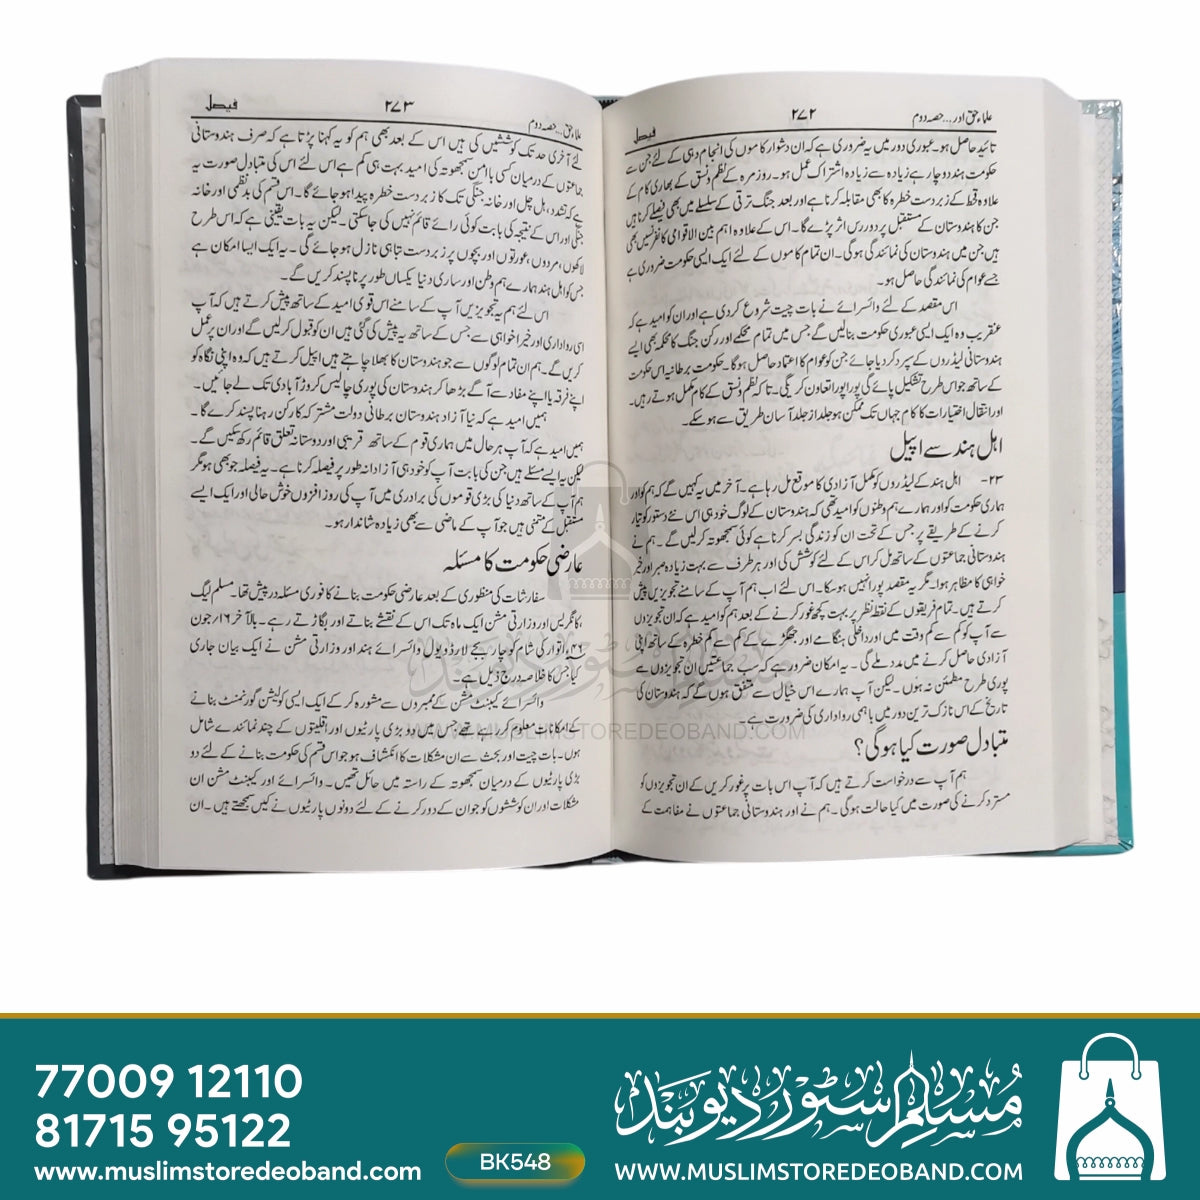 علماء حق اور... حصہ دوم ۲۷۲ فیصل
تائید حاصل ہو۔ عبوری دور میں یہ ضروری ہے کہ ان دشوار کاموں کی انجام دہی کے لئے جن سے
حکومت ہند دوچار ہے زیادہ سے زیادہ اشتراک عمل ہو۔ روزمرہ کے نظم و نسق کے بھاری کام کے
علاوہ قحط کے زبردست خطرہ کا بھی مقابلہ کرنا ہے اور بعد جنگ ترقی کے سلسلے میں بھی فیصلے کرنا ہیں
جن کا ہندوستان کے مستقبل پر دور رس اثر پڑے گا۔ اس کے علاوہ اہم بین الاقوامی کانفرنسیں بھی
ہیں جن میں ہندوستان کی نمائندگی ہوگی۔ ان تمام کاموں کے لئے ایک ایسی حکومت ضروری ہے
جسے عوام کی نمائندگی حاصل ہو۔
اس مقصد کے لئے وائسرائے نے بات چیت شروع کردی ہے اور ان کو امید ہے کہ
عنقریب وہ ایک ایسی عبوری حکومت بنالیں گے جس میں تمام محکمے اور رکن جنگ کا محکمہ بھی ایسے
ہندوستانی لیڈروں کے سپرد کردیا جائے جن کو عوام کا اعتماد حاصل ہوگا۔ حکومت برطانیہ اس حکومت
کے ساتھ جو اس طرح تشکیل پائے گی پورا پورا تعاون کریگی۔ تاکہ نظم و نسق کے کام مکمل ہوتے رہیں۔
اور انتقال اختیارات کا کام جہاں تک ممکن ہو جلد از جلد آسان طریق سے ہوسکے۔
اہل ہند سے اپیل
۲۳- اہل ہند کے لیڈروں کو مکمل آزادی کا موقع مل رہا ہے۔ آخر میں یہ کہیں گے کہ ہم کو اور
ہماری حکومت کو اور ہمارے ہم وطنوں کو امید تھی کہ ہندوستان کے لوگ خود ہی اس نئے دستور کو تیار
کرنے کے طریقے پر جس کے تحت ان کو زندگی بسر کرنا ہے کوئی سمجھوتہ کرلیں گے۔ ہم نے
ہندوستانی جماعتوں کے ساتھ مل کر اس کے لئے کوشش کی اور ہر طرف سے بہت زیادہ صبر اور خیر
خواہی کا مظاہر ہوا۔ مگر یہ مقصد پورا نہیں ہوسکا۔ اس لئے اب ہم آپ کے سامنے تجویزیں پیش
کرتے ہیں۔ تمام فریقوں کے نقطۂ نظر پر بہت کچھ غور کرنے کے بعد ہم کو امید ہے کہ ان تجویزوں
سے آپ کو کم سے کم وقت میں اور داخلی ہنگامے اور جھگڑے کے کم سے کم خطرہ کے ساتھ اپنی
آزادی حاصل کرنے میں مدد ملے گی۔ یہ امکان ضرور ہے کہ سب جماعتیں ان تجویزوں سے
پوری طرح مطمئن نہ ہوں۔ لیکن آپ ہمارے اس خیال سے متفق ہوں گے کہ ہندوستان کی
تاریخ کے اس نازک ترین دور میں باہمی رواداری کی ضرورت ہے۔
متبادل صورت کیا ہوگی؟
ہم آپ سے درخواست کرتے ہیں کہ آپ اس بات پر غور کریں کے ان تجویزوں کو
مسترد کرنے کی صورت میں کیا حالت ہوگی۔ ہم نے اور ہندوستانی جماعتوں نے مفاہمت کے
علماء حق... حصہ دوم ۲۷۳ فیصل
لئے آخری حد تک کوششیں کی ہیں اس کے بعد بھی ہم کو یہ کہنا پڑتا ہے کہ صرف ہندوستانی
جماعتوں کے درمیان کسی باامن سمجھوتہ کی امید بہت ہی کم ہے اس لئے اس کی متبادل صورت یہ
ہے کہ تشدد، ہل چل اور خانہ جنگی تک کا زبردست خطرہ پیدا ہوجائے گا۔ اس قسم کی بدنظمی اور خانہ
جنگی اور اس کے نتیجہ کی بابت کوئی رائے قائم نہیں کی جاسکتی۔ لیکن یہ بات یقینی ہے کہ اس طرح
لاکھوں، مردوں، عورتوں اور بچوں پر زبردست تباہی نازل ہوجائے گی۔ یہ ایک ایسا امکان ہے
جس کو اہل ہند ہمارے ہم وطن اور ساری دنیا یکساں طور پر ناپسند کریں گے۔
اس لئے ہم یہ تجویزیں آپ کے سامنے اس قوی امید کے ساتھ پیش کرتے ہیں کہ آپ
اسی رواداری اور خیر اخواہی سے جس کے ساتھ یہ پیش کی گئی ہیں ان کو قبول کرلیں گے اور ان پر عمل
کریں گے۔ ہم ان تمام لوگوں سے جو ہندوستان کا بھلا چاہتے ہیں اپیل کرتے ہیں کہ وہ اپنی نگاہ کو
اپنے فرقہ یا اپنے مفاد سے آگے بڑھا کر ہندوستان کی پوری چالیس کروڑ آبادی تک لے جائیں۔
ہمیں امید ہے کہ نیا آزاد ہندوستان برطانی دولت مشترکہ کا رکن رہنا پسند کرے گا۔
ہمیں امید ہے کہ آپ ہر حال میں ہماری قوم کے ساتھ قریبی اور دوستانہ تعلق قائم رکھ سکیں گے۔
لیکن یہ ایسے مسئلے ہیں جن کی بابت آپ کو خود ہی آزادانہ طور پر فیصلہ کرنا ہے۔ یہ فیصلہ جو بھی ہو مگر
ہم آپ کے ساتھ دنیا کی بڑی قوموں کی برادری میں آپ کی روز افزوں خوش حالی اور ایک ایسے
مستقبل کے متمنی ہیں جو آپ کے ماضی سے بھی زیادہ شاندار ہو۔
عارضی حکومت کا مسئلہ
سفارشات کی منظوری کے بعد عارضی حکومت بنانے کا فوری مسئلہ درپیش تھا۔ مسلم لیگ
، کانگریس اور وزارتی مشن ایک ماہ تک اس کے نقشے بناتے اور بگاڑتے رہے۔ بالآخر ۱۶/ جون
۴۶ء اتوار کی شام کو چار بجے لارڈ ویول وائسرائے ہند اور وزارتی مشن نے ایک بیان جاری
کیا جس کا خلاصہ درج ذیل ہے۔
وائسرائے کیبنٹ مشن کے ممبروں سے مشورہ کر کے ایک ایسی کولیشن گورنمنٹ بنانے
کے امکانات معلوم کررہے تھے جس میں دو بڑی پارٹیوں اور اقلیتوں کے چند نمائندے شامل
ہوں۔ بات چیت اور بحث سے ان مشکلات کا انکشاف ہو جو اس قسم کی حکومت بنانے کے لئے دو
بڑی پارٹیوں کے درمیان سمجھوتہ کے راستہ میں حائل تھیں۔ وائسرائے اور کیبنٹ مشن ان
مشکلات اور ان کوششوں کو جو ان کے دور کرنے کے لئے دونوں پارٹیوں نے کیں سمجھتے ہیں۔ ان
مسلم سٹور دیوبند
WWW.MUSLIMSTOREDEOBAND.COM
77009 12110
81715 95122
www.muslimstoredeoband.com
BK548
مسلم سٹور دیوبند
WWW.MUSLIMSTOREDEOBAND.COM